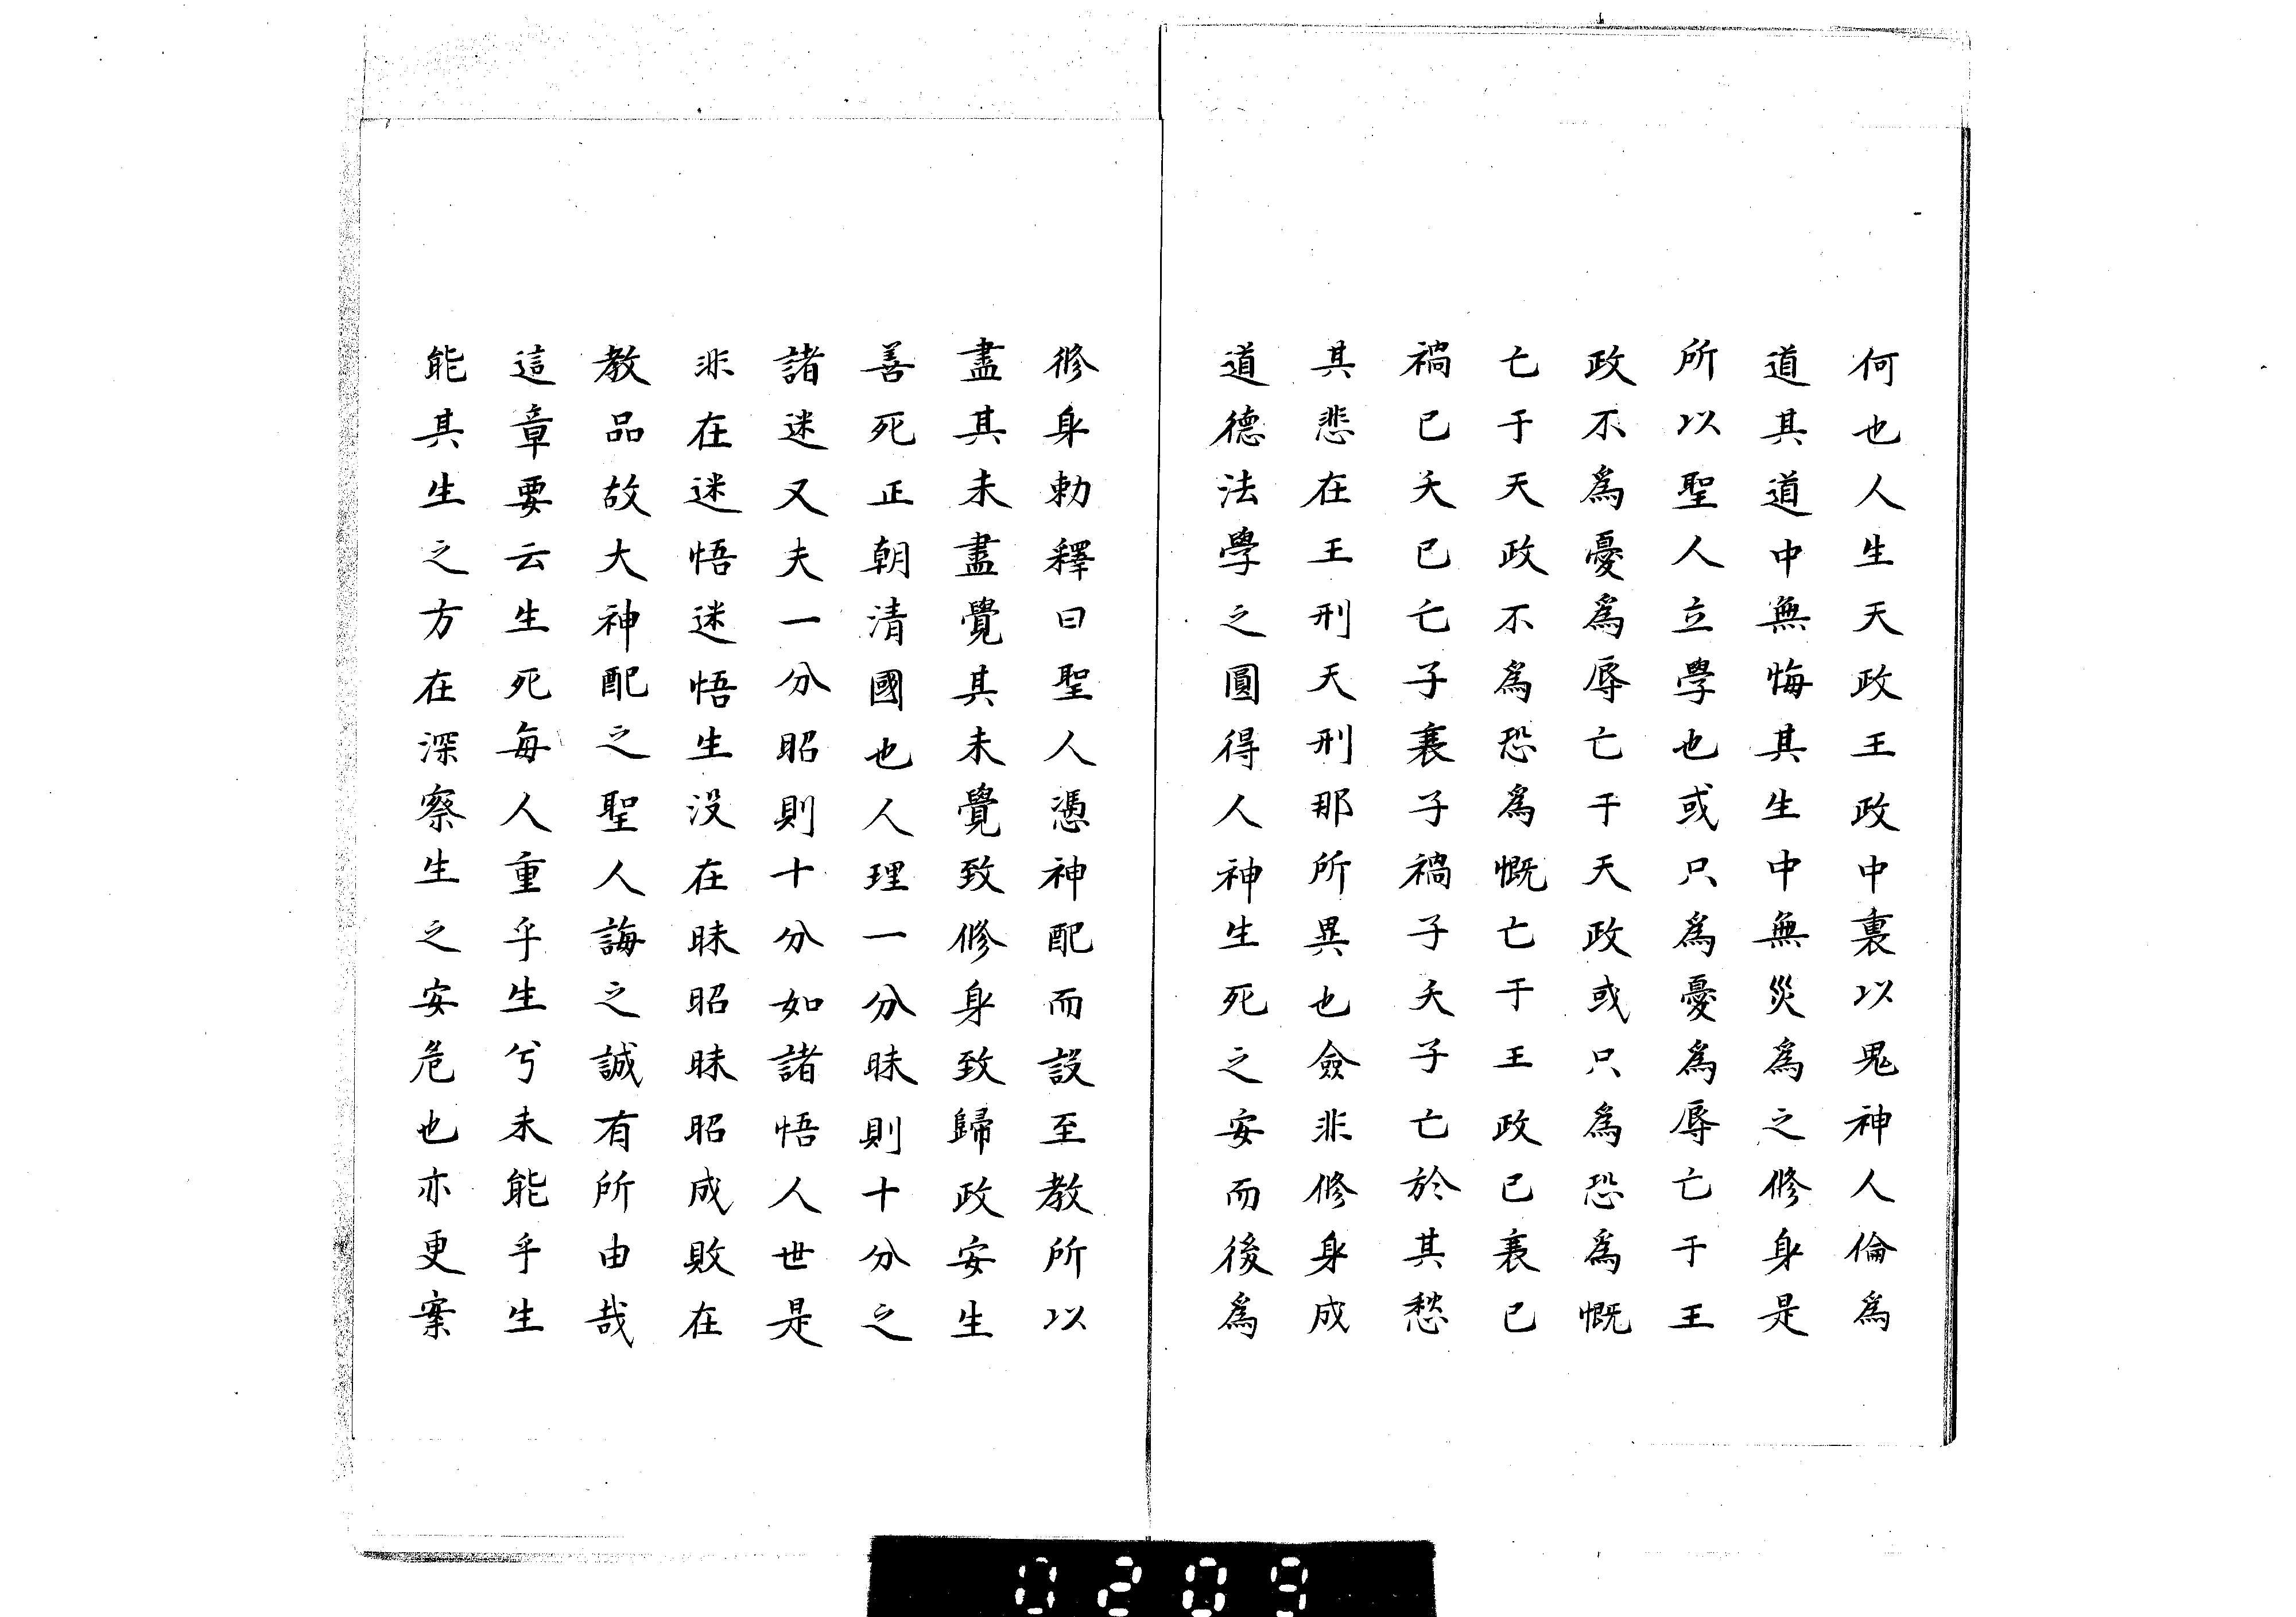 何也人生天政王政中裏以鬼神人倫爲
道其道中無悔其生中無災爲之修身是
所以聖人立學也或只爲憂爲辱亡于王
政不爲憂爲辱亡于天政或只爲恐爲慨
亡于天政不爲恐爲慨亡于王政已衰已
禍已夭已亡子衰子禍子夭子亡於其愁
其悲在王刑天刑那所異也僉非修身成
道德法學之圓得人神生死之安而後爲
修身勅釋曰聖人憑神配而設至教所以
盡其未盡覺其未覺致修身致歸政安生
善死正朝清國也人理一分昧則十分之
諸迷又夫一分昭則十分如諸悟人世是
非在迷悟迷悟生没在昧昭昧昭成敗在
教品故大神配之聖人誨之誠有所由哉
這章要云生死每人重乎生兮未能乎生
能其生之方在深察生之安危也亦更案
0209